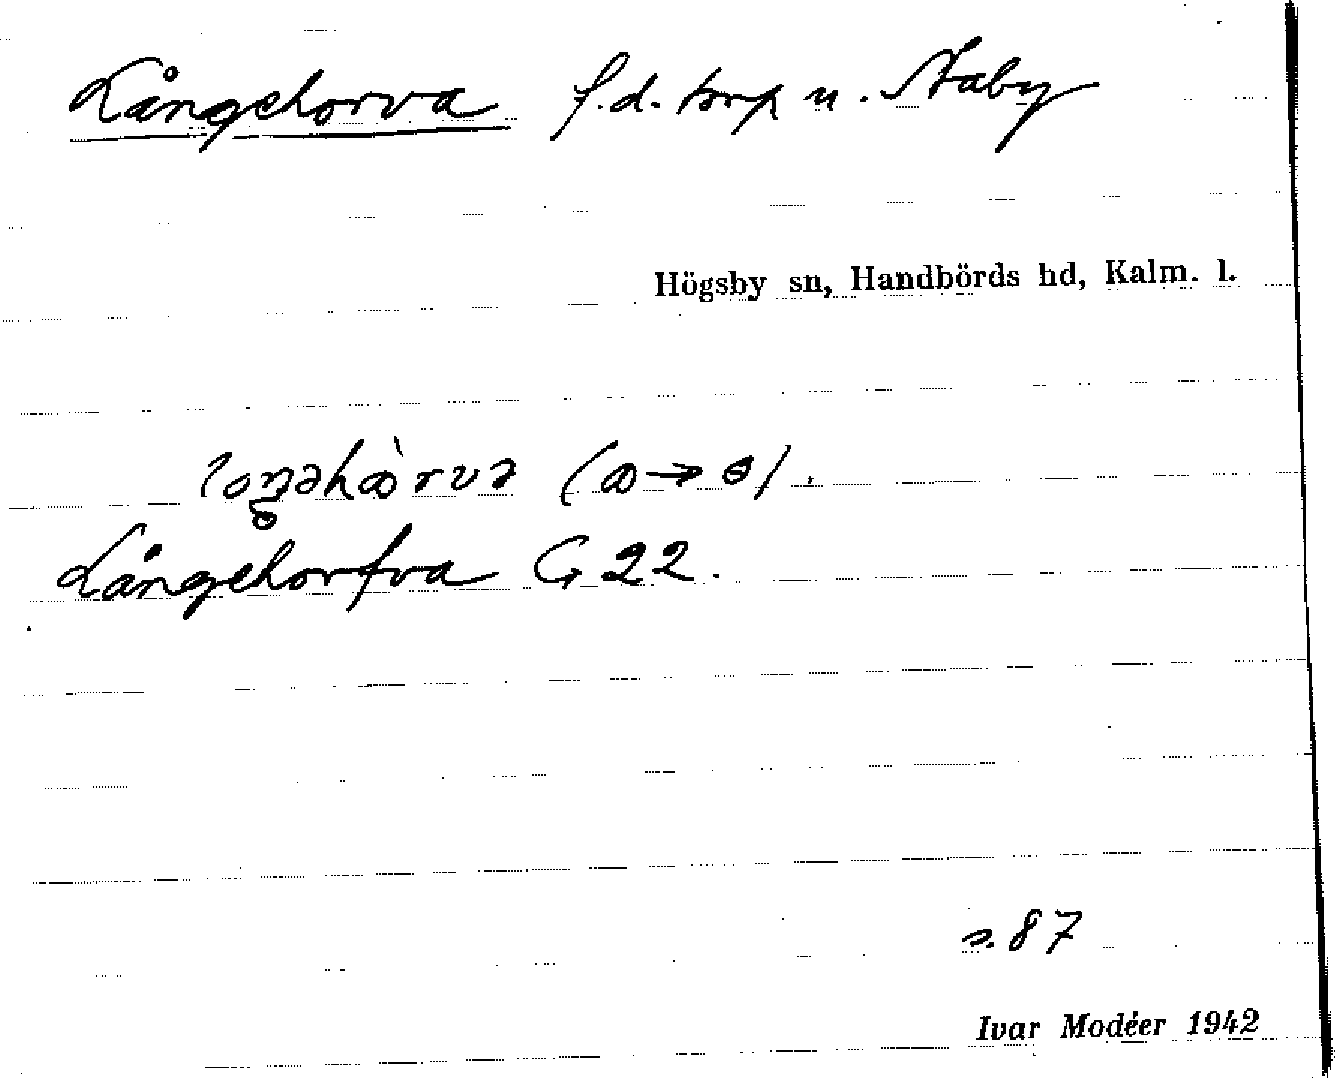 Långehorva f.d. torp u. Staby
Högsby sn, Handbörds hd, Kalm. l.
Långehorfva G 22.
s. 87
Ivar Modéer 1942